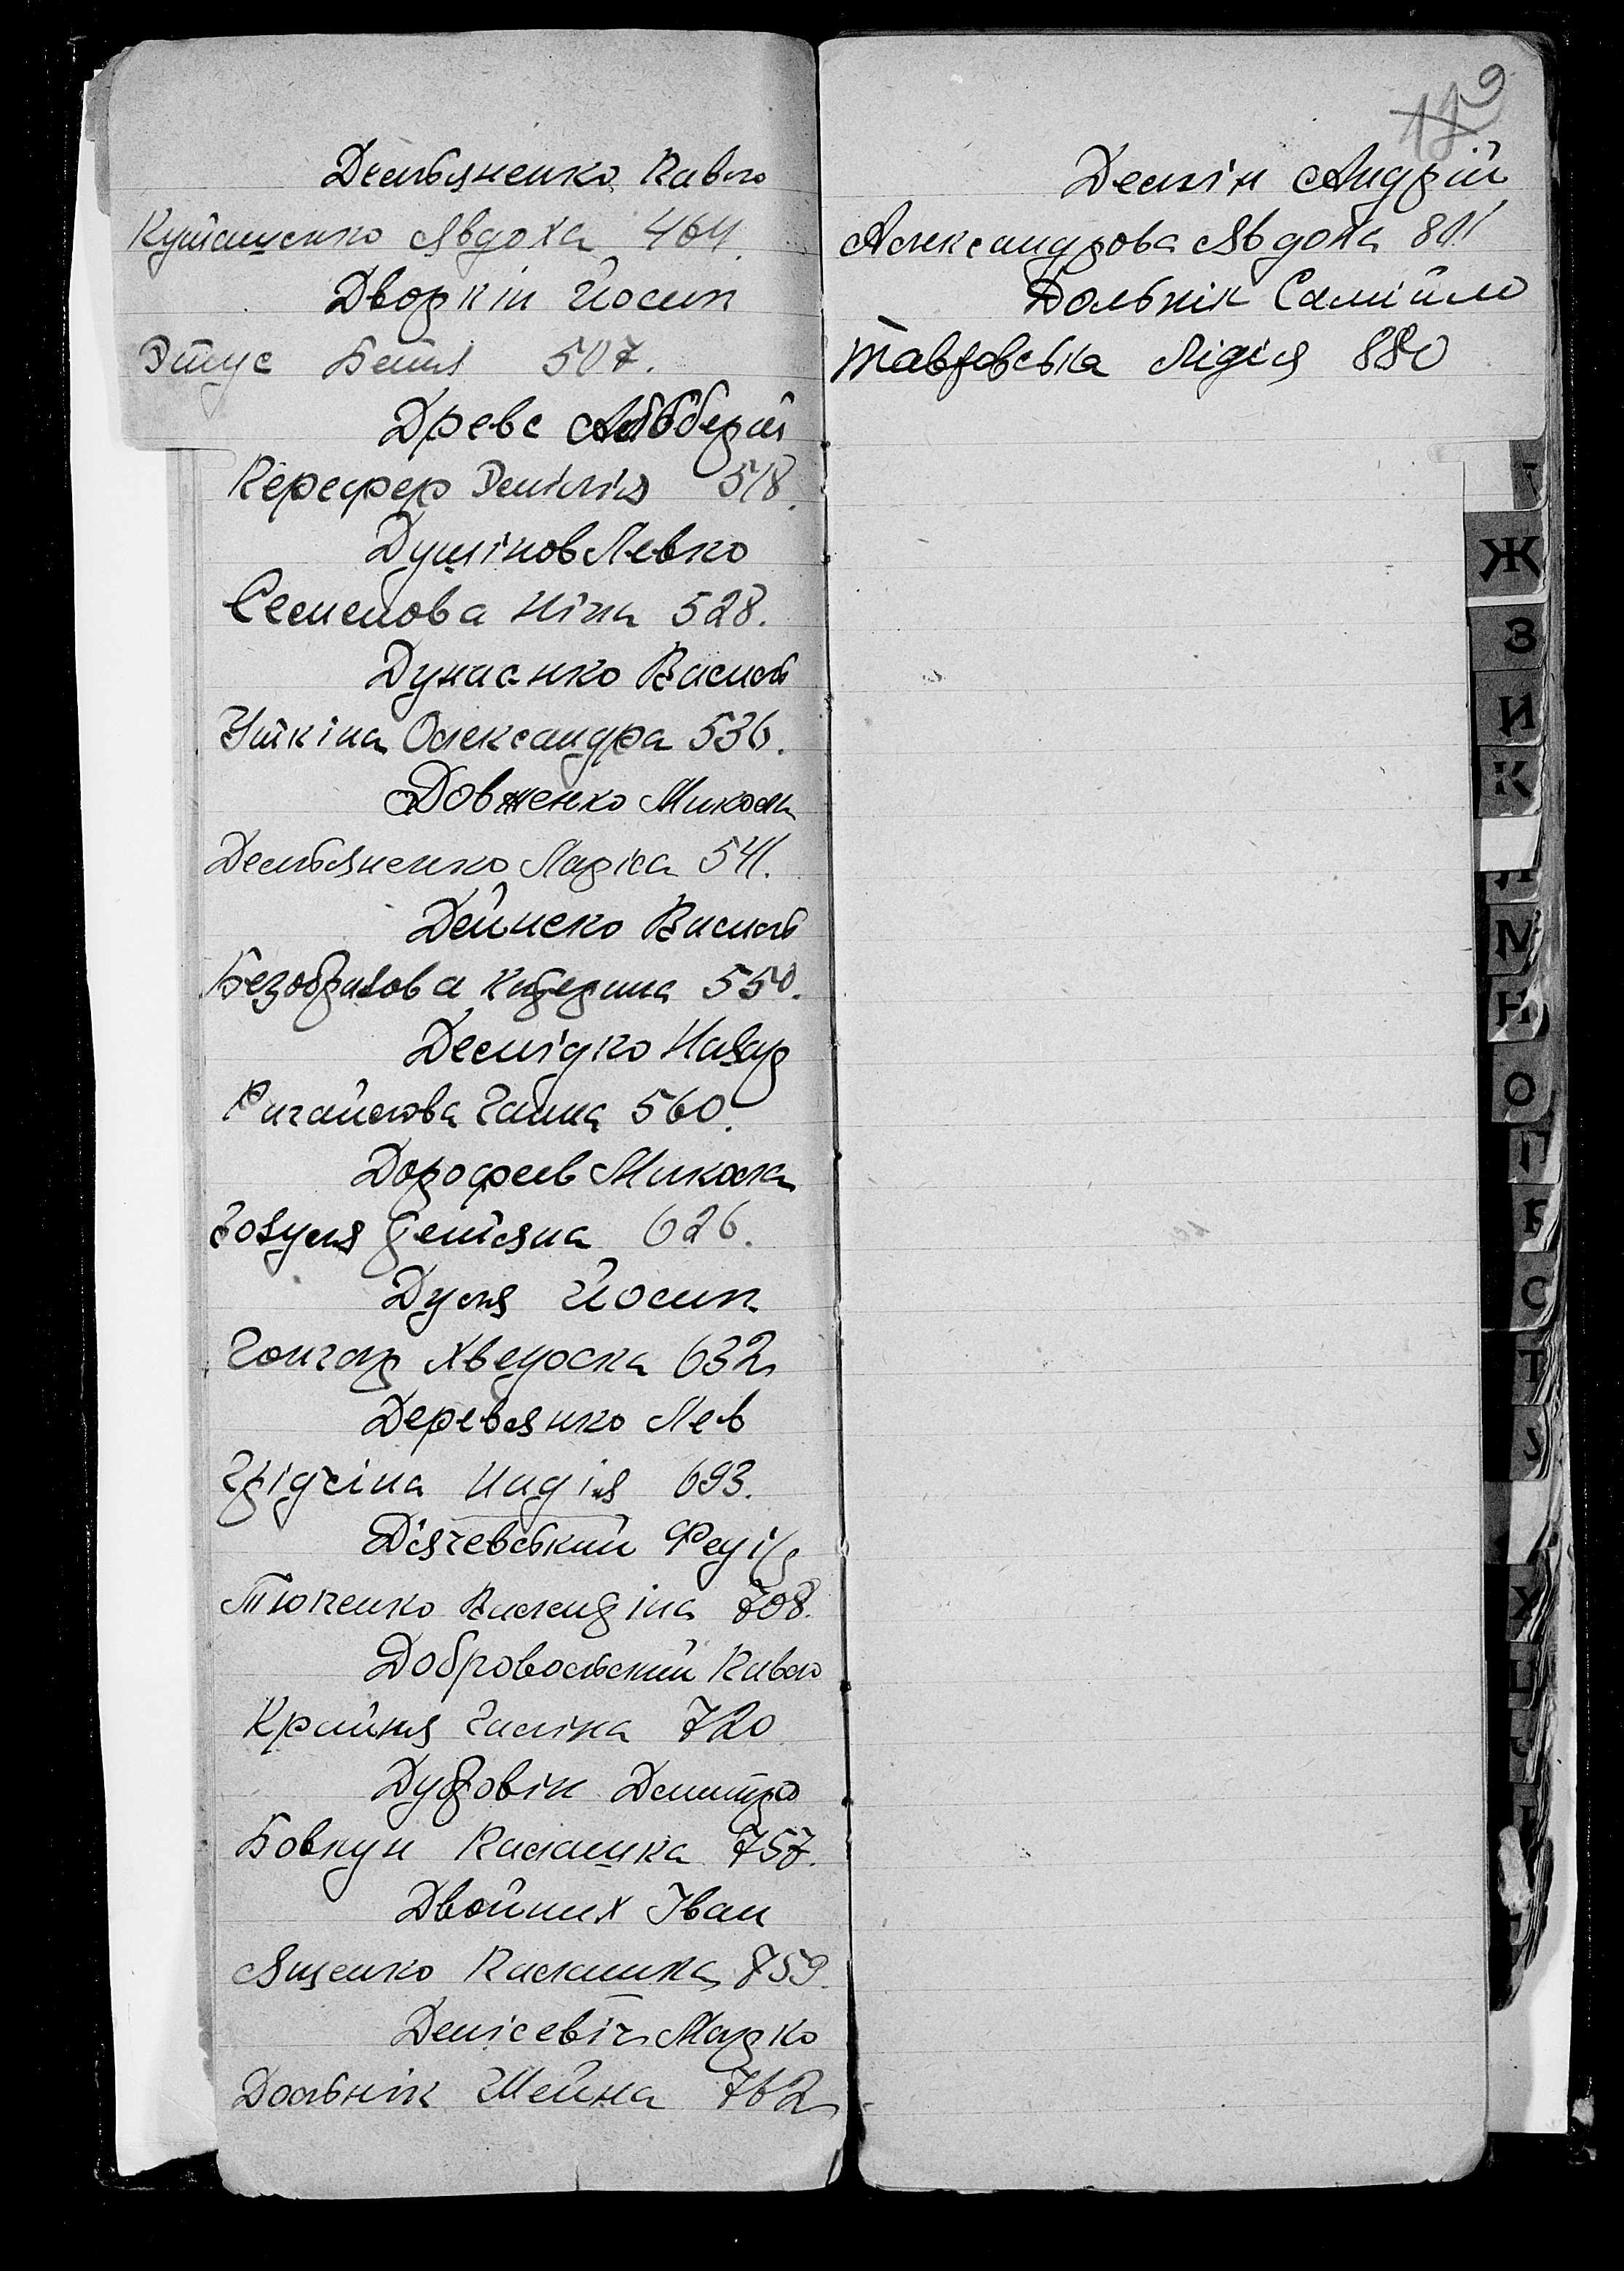 Демьяненко Павло
Кутащенко Явдоха 464.
Дворкін Йосип
Этус Бетя 507.
Древс Альберт
Керефер Эмілія 518.
Душінов Левко
Семенова Ніна 528.
Дунаєнко Василь
Уткіна Олександра 536.
Довженко Микола
Демьяненко Лариса 541.
Дейнеко Василь
Безобразова Катерина 550.
Демідко Назар
Ганна 560.
Дорофеев Микола
Зозуля Тетяна 626.
Дуля Йосип
Гончар Хведоска 632
Деревянко Лев
Грідгіна Надія 693.
Дячевський Федір
Тютенко Валентіна 708.
Добровольский Павло
Крайня Галіна 720
Дубровін Дмитро
Бовкун Палашка 757.
Двойних Іван
Ященко Палашка 759.
Денісевіч Марко
Дольнік Шейна 762
9
Демін Андрій
Александрова Явдоха 801
Дольнік Самійло
Тавровська Лідія 880
Ж
З
И
К
Л
М
Н
О
П
Р
С
Т
У
Х